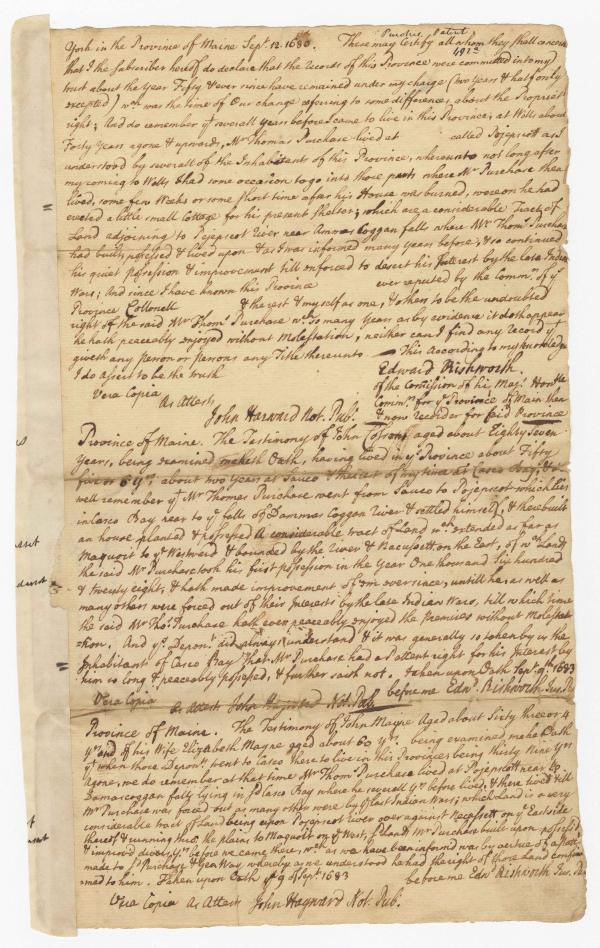 Purchas Patent
York in the Province of Maine Sept. 12. 1683. These may Certify all whom they shall concern
491a
that I the subscriber hereof do declare that the records of this Province were committed into my
trust about the Year Fifty & ever since have remained under my charge (two years & half only
excepted) wch. was the time of Our change referring to some differences about the Proprieter
right; And do remember yt severall years before I came to live in this Province, at Wells about
Forty Years agone & upwards, Mr Thomas Purchase lived at called Pojepscott as I
understood by severall of the Inhabitants of this Province, whereunto not long after
my coming to Wells, I had some occasion to go into those parts where Mr Purchase then
lived, some few Weeks or some short time after his House was burned, where on he had
erected a little small Cottage for his present shelter; which are a considerable Tract of
Land adjoining to Pejepscot River near Amoras Coggan falls where Mr Thoms. Purchase
had built, possessed & lived upon & as I was informed many years before; & so continued
his quiet possession & improvement till enforced to desert his Interest by the late Indian
Wars; And since I have known this Province ever reputed by the Commrs. of ye
Province Collonell & the rest & myself as one, & others to be the undoubted
right of the said Mr Thoms. Purchase wch so many years as by evidence it doth appear
he hath peaceably enjoyed without Molestation, neither can I find any Record yt
giveth any person or persons any Title thereunto This According to my knowledge
I do assert to be the truth Edward Rishworth.
Vera Copia of the Comission of his Majs. Honble
As Attests Commrs. for ye Province of Main then
John Harward Not. Pub. & now Recorder for said Province
Province of Maine. The Testimony of John Cossons aged about Eighty Seven
Years, being examined maketh Oath, having lived in ye Province about Fifty
five or 6 yrs. about two Years at Sauco & the rest of my time at Casco Bay, & do
well remember yt Mr Thomas Purchase went from Sauco to Pojepscot which lies
in Casco Bay near to ye falls of Dammas Coggon River & settled himself, & there built
an house planted & possessed A considerable tract of Land wch extended as far as
Maquoit to ye Westward & bounded by the River & Nacusett on the East, of wch Land
the said Mr Purchase took his first possession in the Year One thousand Six hundred
& twenty eight, & hath made improvement of it ever since, untill he, as well as
many others were forced out of their Interests by the late Indian Wars, till which time
the said Mr Thos. Purchase hath ever peaceably enjoyed the Premises without Molestat
=tion. And ys. Depont. did always understand & it was generally so taken by us the
Inhabitants of Casco Bay That Mr Purchase had a Pattent right for his Interest by
him so long & peaceably possessed, & further saith not. Taken upon Oath Sepr. 9th 1683
before me Edwd. Rishworth Jus. Pe
Vera Copia As Attests John Hayward Not. Pub.
Province of Maine. The Testimony of John Mayne Aged about Sixty three or 4
yrs and of his Wife Elizabeth Mayne aged about 60 yrs. being examined, make Oath
yt when those Deponts. went to Casco there to live in this Province being thirty Nine yrs
Agone, we do remember at that time Mr Thoms. Purchase lived at Pojepscott near to
Damarscoggan falls lying in sd Casco Bay where he severall yrs before lived, & there lived till
Mr Purchase was forced out as many other were by ye last Indian Wars; which Land is a very
considerable tract of Land being upon Pojepscot river over against Neapsett, on ye East side
thereof & running thro. the plains to Maquoit on ye West, sd Land Mr Purchase built upon possessd
& improved severll yrs before we came there, wch as we have been informed was by vertue of a Patent
made to sd Purchase & Geo. Way whereby as we understood he had the right of those Land confirm
=med to him. Taken upon Oath ys 9 of Sept. 1683 before me Edwd. Rishworth Jus. Pe
Vera Copia As Attests John Hayward Not. Pub.